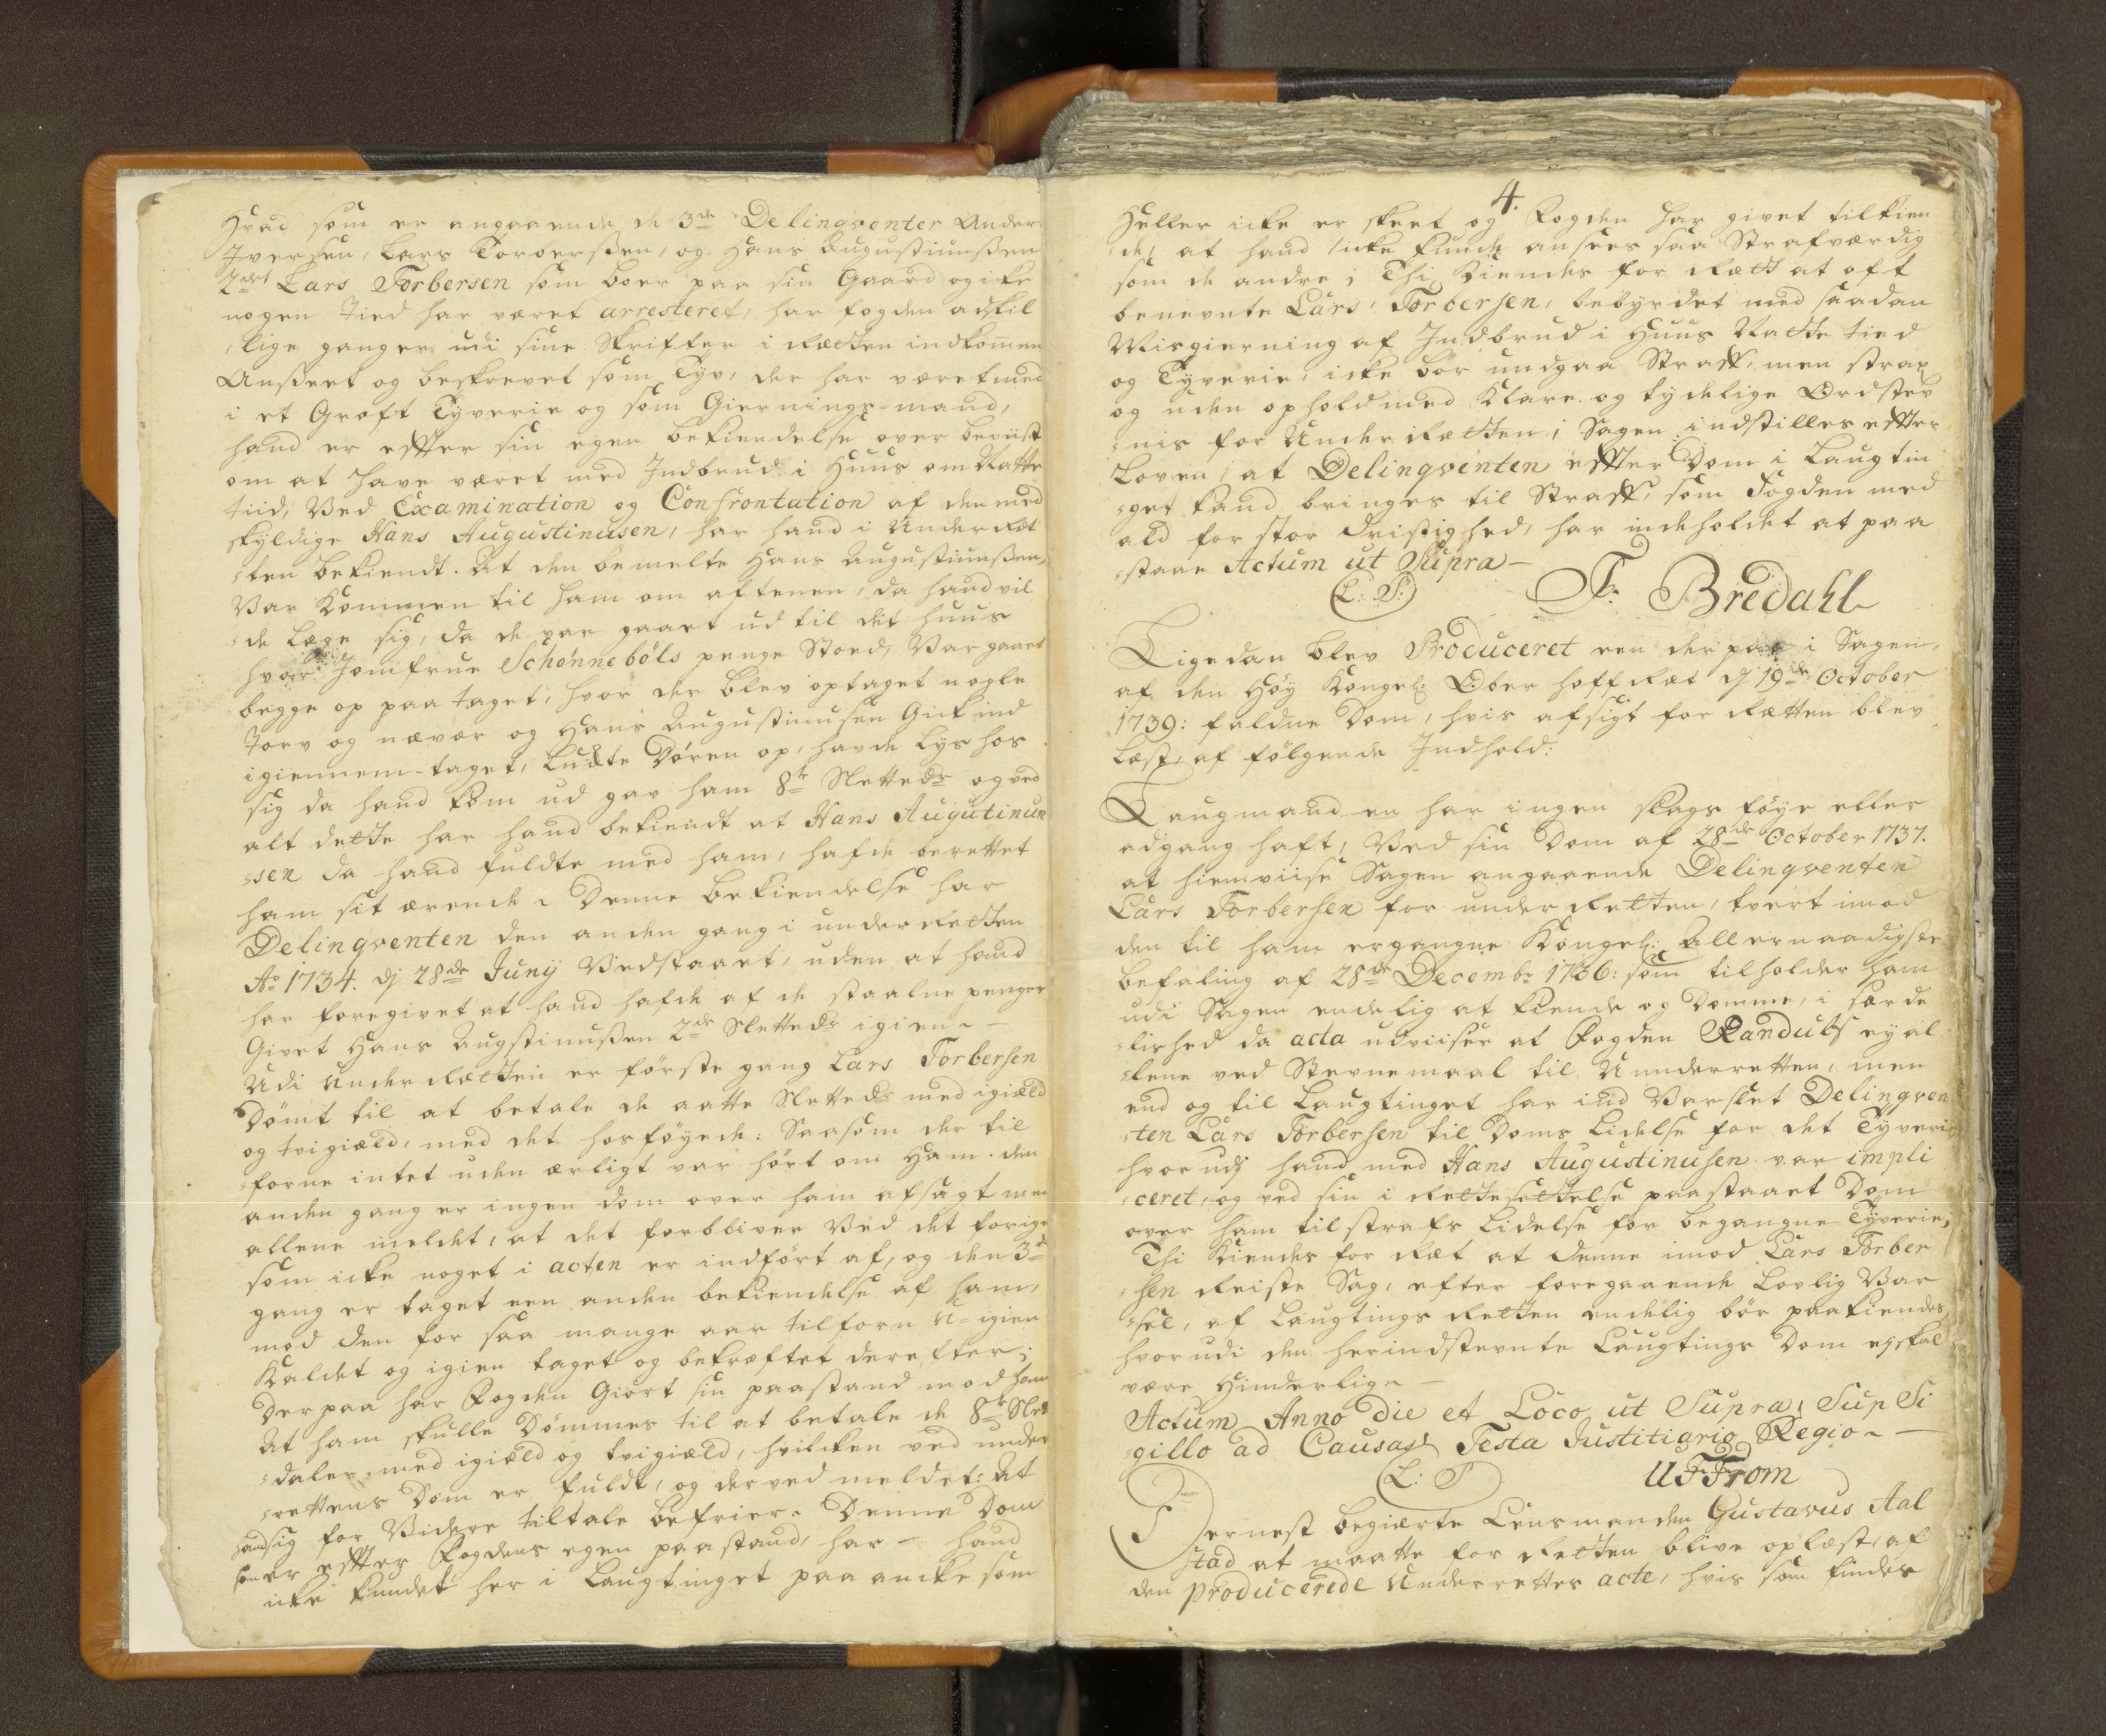 Hvad som er angaaende de 3de Delinqventer Ander
Iversen, Lars Torberßen, og Hans Augustinußen
2det Lars Torbersen som boer paa sin Gaard og icke
nogen Tied har været arresteret, har fogden adskil
-lige ganger udi sine Skrifter i Retten indkommen
Anßeet og beskrevet som Tyv, der har været med
i et Groft Tyverie og som Giernings-mand,
hand er effter sin egen bekiendelse over beviist
om at have været med Indbrud i Huus om Natte
tiid, Ved Examination og Confrontation af den med
skyldige Hans Augustinusen, har hand i Under Ret
-ten bekiendt. At den bemelte Hans Augustinußen,
Var kommen til ham om aftenen, da hand vil
-de legge sig, da de var gaaet ud til det huus
hvor Jomfrue Schönnebøls penge Stoed, Var gaaet
begge op paa taget, hvor der blev optaget nogle
Torv og næver og Hans Augustinusen Gick ind
igiennem-taget, Luckte Døren op, havde Lys hos
sig da hand kom ud gav ham 8te Slettedr og ved
alt dette har hand bekiendt at Hans Augutinun
-sen da hand fuldte med ham, hafde berettet
ham sit ærende. Denne bekiendelse har
Delinqventen den anden gang i under Retten
Ao 1734. dj 28de Junij Vedstaaet, uden at hand
har foregivet at hand hafde af de staalne penger
Givet Hans Augstinußen 2de Slettedr igien.
Udi Under Retten er første gang Lars Torbersen
Dømt til at betale de aatte Slettedr med igiæld
og tvigiæld, med det hosføyede: Saasom der til
-forne intet uden ærligt var hørt om Ham. den
anden gang er ingen dom over ham afsagt men
allene meldet, at det forbliver Ved det forige
som icke noget i acten er indført af, og den 3de
gang er taget een anden bekiendelse af ham,
mod den for saa mange aar tilforn igien
Kaldet og igien taget og bekræftet derefter;
Derpaa har Fogden Giort sin paastand mod ham
At ham skulle Dømmes til at betale de 8te Slet
-daler, med igiæld og tvigiæld, hvilcken ved under
-rettens Dom er fuldt, og derved meldet: At
hand sig for Videre tiltale befrier. Denne Dom
som er effter Fogdens egen paastand, har hand
icke kundet her i Laugtinget paa ancke som
4.
Heller icke er skeet og Fogden har givet tilkien
-de, at hand icke kunde ansees saa Strafværdig
som de andre; Thi Kiendes for Rett at oft
benevnte Lars Torbersen, bebyrdet med saadan
Misgierning af Indbrud i Huus Natte tied
og Tyverie, icke bør undgaa Straff, men strax
og uden ophold med Klare og tydelige Ord stev
-nis for Under Retten, Sagen indstilles effter
Loven, at Delinqventen effter Dom i Laugtin
-get kand bringes til Straff, som Fogden med
ald for stor Dristighed, har indeholdet at paa
-staae Actum ut Supra -
(L: S:) F. Bredahl
Ligedan blev Produceret een der paa i Sagen,
af den Høy Kongel: Ober hoff Ret dj 19de October
1739: faldne Dom, hvis afsigt for Retten blev
Læst, af følgende Indhold:
Laugmanden har ingen slags føye eller
adgang haft, Ved sin Dom af 28de October 1737.
at hiemviise Sagen angaaende Delinqventen
Lars Torbersen for under Retten, tvert imod
den til ham ergangne Kongel: Allernaadigste
befaling af 28de Decembr 1736: som tilholder ham
udi Sagen endelig at kiende og Domme, i sær de
-lished da acta udviiser at Fogden Randulf ey al
-lene ved Stevnemaal til Underretten, men
end og til Laugtinget har ind Varslet Delinqven
-ten Lars Torbersen til Doms Lidelse for det Tyverie
hvorudj hand med Hans Augustinusen var impli
-ceret, og ved sin i Rettesettelse paastaaet Dom
over ham til strafs Lidelse for begangne Tyverie,
Thi Kiendes for Ret at denne imod Lars Torber
-sen Reiste Sag, efter foregaaende Lovlig Var
-sel, af Laugtings Retten endelig bør paakiendes,
hvorudi den herindstevnte Laugtings Dom ey skal
være Hinderlig.
Actum Anno Die et Loco ut Supra, Sup Si
-gillo ad Causas Testa Justitiario Regio.
(L: S) U F From
Dernest begiærte Lensmanden Gustavus Aal
stad at maatte for Retten blive oplæst, af
den producerede Underrettes acte, hvis som findes